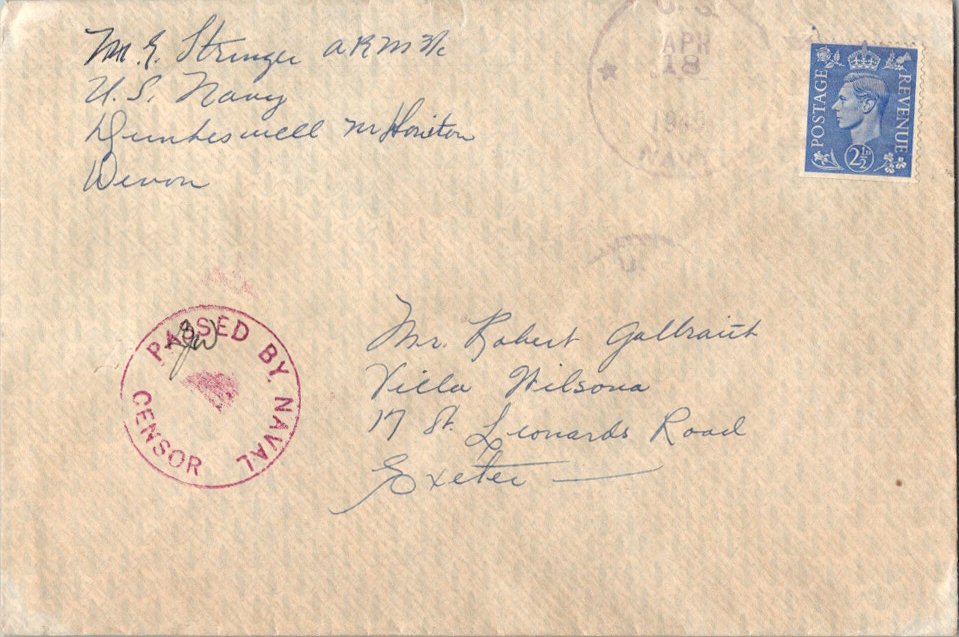 M. E. Stringer ARM 3/c
U. S. Navy
Dunkeswell nr Honiton
Devon
U. S.
APR
18
194
NAVY
POSTAGE
REVENUE
2½D
PASSED BY NAVAL
CENSOR
Mr. Robert Galbraith
Villa Wilsona
17 St. Leonards Road
Exeter